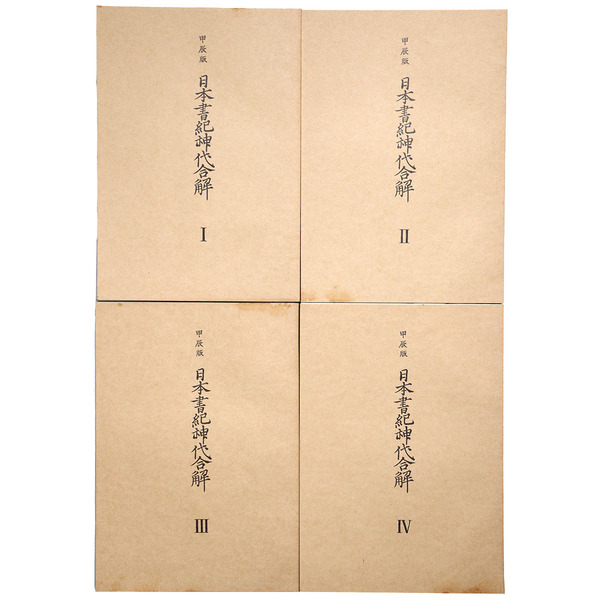 甲辰版
日本書紀神代合解
I
甲辰版
日本書紀神代合解
II
甲辰版
日本書紀神代合解
III
甲辰版
日本書紀神代合解
IV